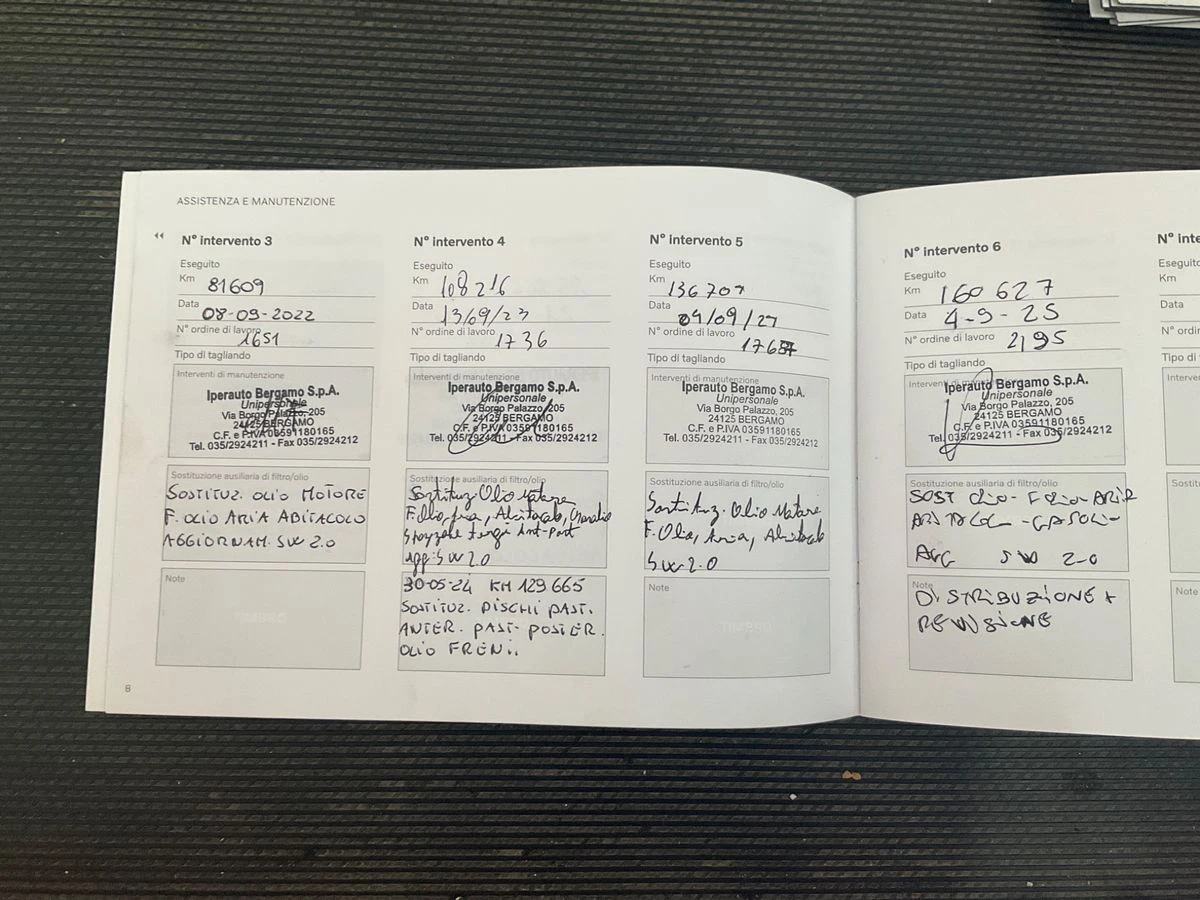 ASSISTENZA E MANUTENZIONE
N° intervento 3
Eseguito
Km 81609
Data 08-09-2022
N° ordine di lavoro 1651
Tipo di tagliando
Interventi di manutenzione
Iperauto Bergamo S.p.A.
Unipersonale
Via Borgo Palazzo, 205
24125 BERGAMO
C.F. e P.IVA 03591180165
Tel. 035/2924211 - Fax 035/2924212
Sostituzione ausiliaria di filtro/olio
SOSTITUZ. OLIO MOTORE
F. OLIO ARIA ABITACOLO
AGGIORNAM. SW 2.0
Note
8
N° intervento 4
Eseguito
Km 108216
Data 13/09/23
N° ordine di lavoro 1736
Tipo di tagliando
Interventi di manutenzione
Iperauto Bergamo S.p.A.
Unipersonale
Via Borgo Palazzo, 205
24125 BERGAMO
C.F. e P.IVA 03591180165
Tel. 035/2924211 - Fax 035/2924212
Sostituzione ausiliaria di filtro/olio
Sostituz. Olio Motore
F. Olio, Aria, Abitacolo,
Spazzole Tergi Ant-Post
Agg. SW 2.0
30-05-24 KM 129665
SOSTITUZ. DISCHI PAST.
ANTER. PAST. POSTER.
OLIO FRENI.
N° intervento 5
Eseguito
Km 136707
Data 04/09/
N° ordine di lavoro
Tipo di tagliando
Interventi di manutenzione
Iperauto Bergamo S.p.A.
Unipersonale
Via Borgo Palazzo, 205
24125 BERGAMO
C.F. e P.IVA 03591180165
Tel. 035/2924211 - Fax 035/2924212
Sostituzione ausiliaria di filtro/olio
Sostituz. Olio Motore
F. Olio, Aria, Abitacolo
SW 2.0
Note
N° intervento 6
Eseguito
Km 160627
Data 4-9-25
N° ordine di lavoro 2195
Tipo di tagliando
Interventi di manutenzione
Iperauto Bergamo S.p.A.
Unipersonale
Via Borgo Palazzo, 205
24125 BERGAMO
C.F. e P.IVA 03591180165
Tel. 035/2924211 - Fax 035/2924212
Sostituzione ausiliaria di filtro/olio
SOST OLIO - F OLIO - ARIA
ABITACOL - GASOLIO
AGG SW 2-0
Note
DISTRIBUZIONE +
REVISIONE
N° inte
Eseguito
Km
Data
N° ordin
Tipo di t
Interve
Sostitu
Note